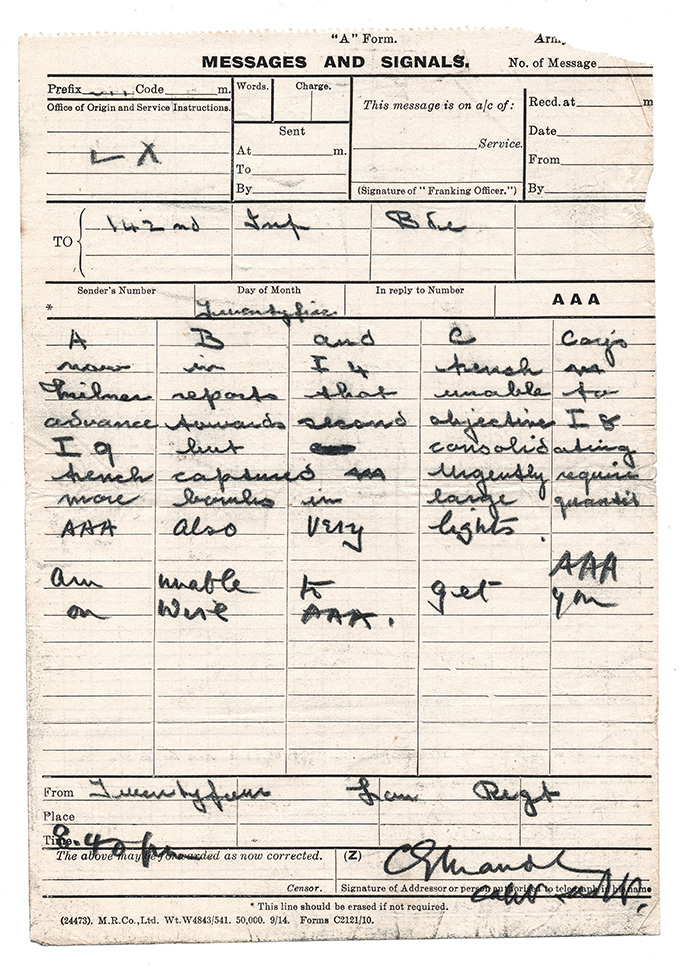 "A" Form. Army
MESSAGES AND SIGNALS. No. of Message
Prefix Code m.
Office of Origin and Service Instructions.
Words. Charge.
Sent
At m.
To
By
This message is on a/c of:
Service.
(Signature of "Franking Officer.")
Recd. at m
Date
From
By
TO 142nd Inf Bde
Sender's Number Day of Month In reply to Number AAA
* Twentyfive
A B and C Coys
now in I 4 trench AAA
Milner reports that unable to
advance towards second objective I 8
I 9 but consolidating
trench captured AAA Urgently require
more bombs in large quantit
AAA Also Very lights.
AAA
Am unable to get you
on Wire AAA.
From Twentyfour Lon Regt
Place
Time 8.40 pm
The above may be forwarded as now corrected. (Z)
Censor. Signature of Addressor or person authorised to telegraph in his name
Capt and
* This line should be erased if not required.
(24473). M.R.Co.,Ltd. Wt.W4843/541. 50,000. 9/14. Forms C2121/10.